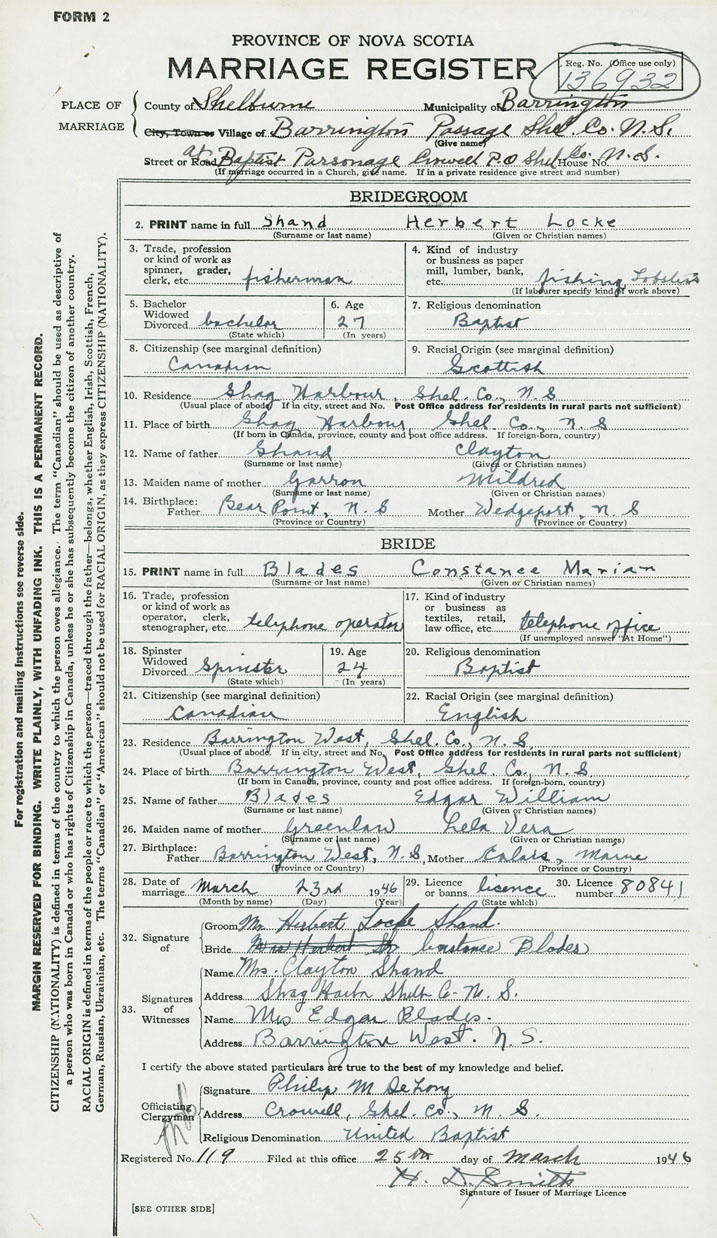 FORM 2
PROVINCE OF NOVA SCOTIA
MARRIAGE REGISTER
Reg. No. (Office use only)
136932
PLACE OF MARRIAGE
County of Shelburne Municipality of Barrington
City, Town or Village of Barrington Passage Shel. Co. N.S.
(Give name)
at Street or Road Baptist Parsonage Crowell P.O Shel. Co. House No. N.S.
(If marriage occurred in a Church, give name. If in a private residence give street and number)
BRIDEGROOM
2. PRINT name in full Shand Herbert Locke
(Surname or last name) (Given or Christian names)
3. Trade, profession or kind of work as spinner, grader, clerk, etc. fisherman
4. Kind of industry or business as paper mill, lumber, bank, etc. fishing Lobsters
(If labourer specify kind of work above)
5. Bachelor Widowed Divorced bachelor
(State which)
6. Age 27
(In years)
7. Religious denomination
Baptist
8. Citizenship (see marginal definition)
Canadian
9. Racial Origin (see marginal definition)
Scottish
10. Residence Shag Harbour, Shel. Co, N S
(Usual place of abode. If in city, street and No. Post Office address for residents in rural parts not sufficient)
11. Place of birth Shag Harbour, Shel. Co., N. S
(If born in Canada, province, county and post office address. If foreign-born, country)
12. Name of father Shand Clayton
(Surname or last name) (Given or Christian names)
13. Maiden name of mother Garron Mildred
(Surname or last name) (Given or Christian names)
14. Birthplace: Father Bear Point, N. S Mother Wedgeport, N S
(Province or Country) (Province or Country)
BRIDE
15. PRINT name in full Blades Constance Marian
(Surname or last name) (Given or Christian names)
16. Trade, profession or kind of work as operator, clerk, stenographer, etc. telephone operator
17. Kind of industry or business as textiles, retail, law office, etc. telephone office
(If unemployed answer "At Home")
18. Spinster Widowed Divorced Spinster
(State which)
19. Age 24
(In years)
20. Religious denomination
Baptist
21. Citizenship (see marginal definition)
Canadian
22. Racial Origin (see marginal definition)
English
23. Residence Barrington West, Shel. Co., N. S
(Usual place of abode. If in city, street and No. Post Office address for residents in rural parts not sufficient)
24. Place of birth Barrington West, Shel. Co., N. S
(If born in Canada, province, county and post office address. If foreign-born, country)
25. Name of father Blades Edgar William
(Surname or last name) (Given or Christian names)
26. Maiden name of mother Greenlaw Lela Vera
(Surname or last name) (Given or Christian names)
27. Birthplace: Father Barrington West, N. S, Mother Calais, Maine
(Province or Country) (Province or Country)
28. Date of marriage March 23rd 1946
(Month by name) (Day) (Year)
29. Licence or banns licence
(State which)
30. Licence number 80841
32. Signature of
Groom Mr. Herbert Locke Shand.
Bride Mrs Herbert Sh Constance Blades
33. Signatures of Witnesses
Name Mrs. Clayton Shand
Address Shag Harbr Shelb Co- N. S.
Name Mrs Edgar Blades.
Address Barrington West. N. S.
I certify the above stated particulars are true to the best of my knowledge and belief.
Officiating Clergyman
Signature Philip M DeLong
Address Crowell, Shel. Co., N. S.
Religious Denomination United Baptist
Registered No. 119 Filed at this office 25th day of March 1946
H. D. Smith
Signature of Issuer of Marriage Licence
[SEE OTHER SIDE]
For registration and mailing Instructions see reverse side.
MARGIN RESERVED FOR BINDING. WRITE PLAINLY, WITH UNFADING INK. THIS IS A PERMANENT RECORD.
CITIZENSHIP (NATIONALITY) is defined in terms of the country to which the person owes allegiance. The term "Canadian" should be used as descriptive of
a person who was born in Canada or who has rights of Citizenship in Canada, unless he or she has subsequently become the citizen of another country.
RACIAL ORIGIN is defined in terms of the people or race to which the person—traced through the father—belongs, whether English, Irish, Scottish, French,
German, Russian, Ukrainian, etc. The terms "Canadian" or "American" should not be used for RACIAL ORIGIN, as they express CITIZENSHIP (NATIONALITY).